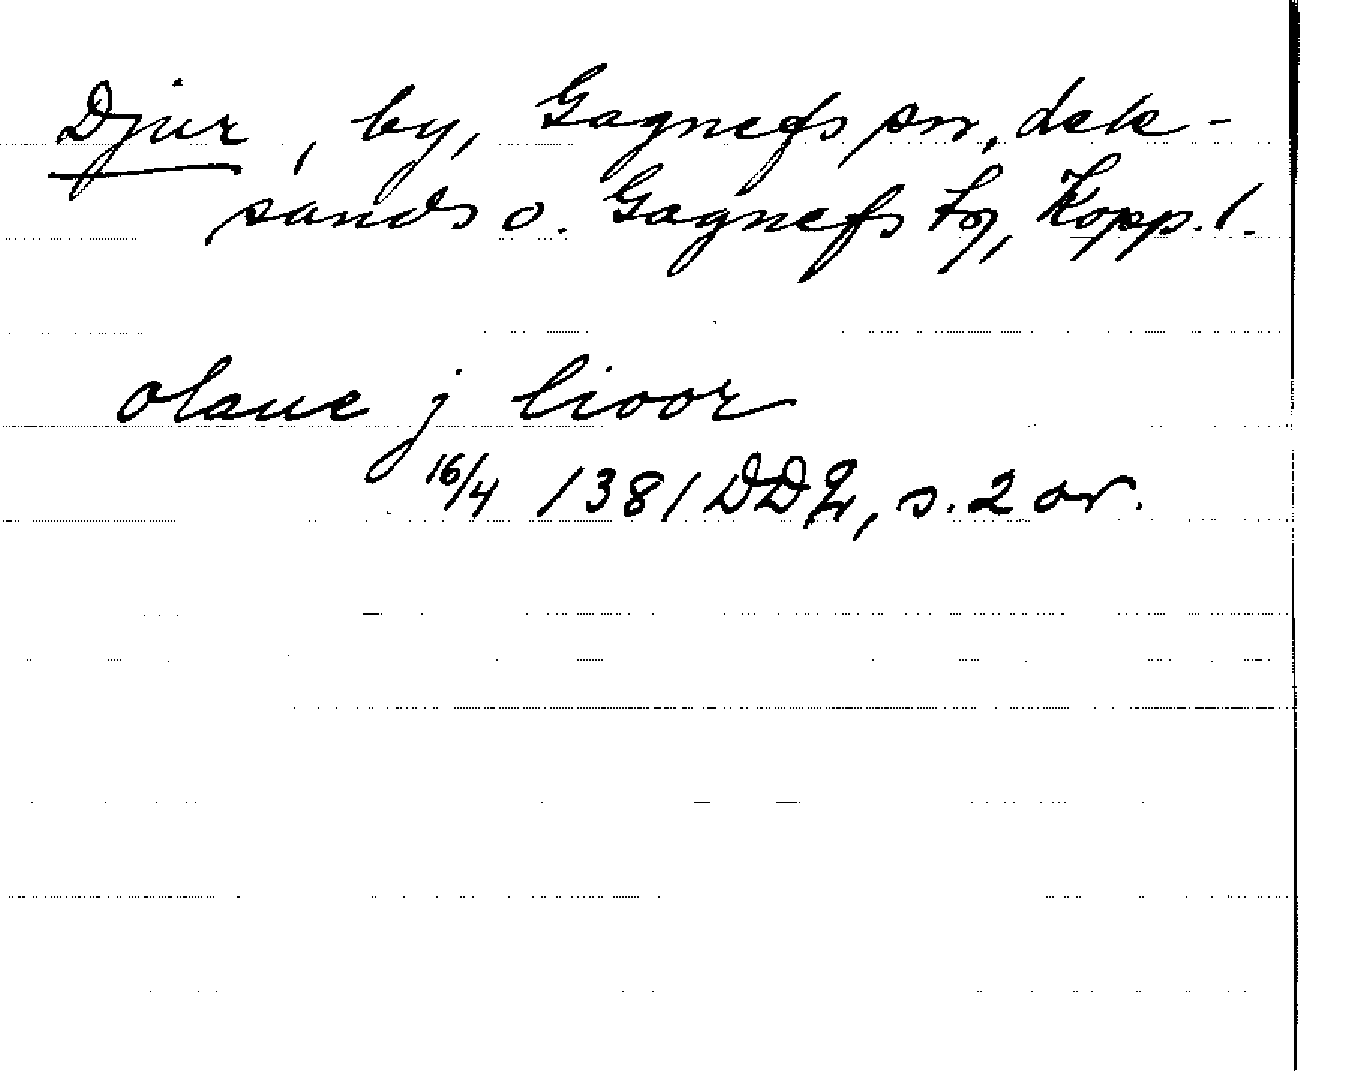 Djur, by, Gagnefs sn, Lek-
sands o. Gagnefs tg, Kopp. l.
olaue j lioor
16/4 1381 DD 2, s. 2 or.